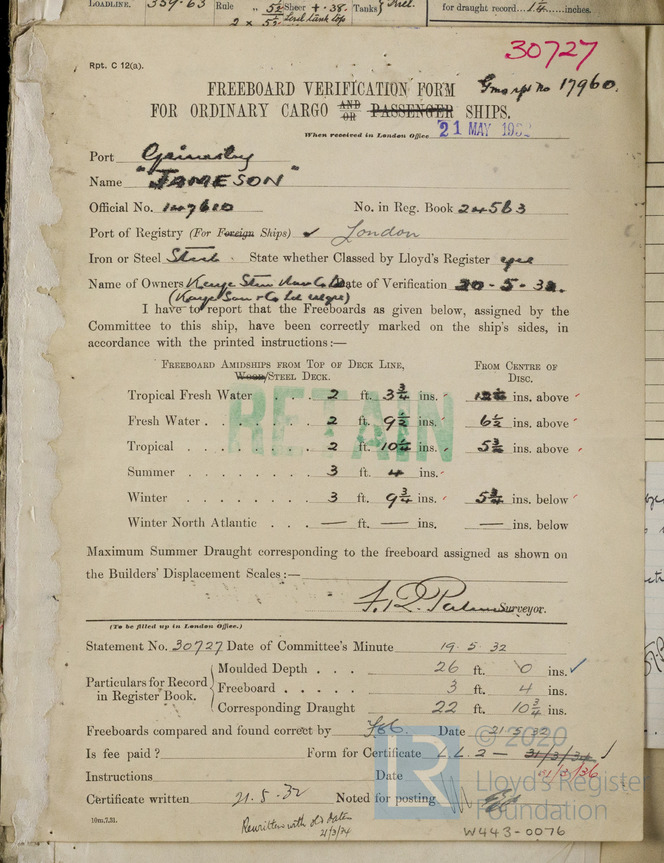 LOADLINE. 359.63 Rule " 52 Sheer + .38. Tanks
2 × 5½ Level tank top
for draught record...1¼......inches.
30727
Rpt. C 12(a).
Gms rpt no 17960.
FREEBOARD VERIFICATION FORM
FOR ORDINARY CARGO AND OR PASSENGER SHIPS.
When received in London Office 21 MAY 193
Port Grimsby
Name "JAMESON"
Official No. 147600 No. in Reg. Book 24563
Port of Registry (For Foreign Ships) ✓ London
Iron or Steel Steel. State whether Classed by Lloyd's Register yes
Name of Owners Kaye Date of Verification 20-5-32.
(Kaye Son & Co Ld
I have to report that the Freeboards as given below, assigned by the
Committee to this ship, have been correctly marked on the ship's sides, in
accordance with the printed instructions:—
FREEBOARD AMIDSHIPS FROM TOP OF DECK LINE, FROM CENTRE OF
WOOD/STEEL DECK. DISC.
RETAIN
Tropical Fresh Water 2 ft. 3¾ ins. ins. above
Fresh Water 2 ft. 9½ ins. 6½ ins. above
Tropical 2 ft. 10¼ ins. 5¾ ins. above
Summer 3 ft. 4 ins.
Winter 3 ft. 9¾ ins. 5¾ ins. below
Winter North Atlantic — ft. — ins. — ins. below
Maximum Summer Draught corresponding to the freeboard assigned as shown on
the Builders' Displacement Scales:—
Surveyor.
(To be filled up in London Office.)
Statement No. 30727 Date of Committee's Minute 19.5.32
Particulars for Record in Register Book.
Moulded Depth . . . 26 ft. 0 ins. ✓
Freeboard . . . . . 3 ft. 4 ins.
Corresponding Draught 22 ft. 10¾ ins.
Freeboards compared and found correct by Date 21.5.32
Is fee paid? Form for Certificate L.L.2 — 31/3/34
Instructions Date 31/3/36
Certificate written 21.5.32 Noted for posting
10m,7,31.
Rewritten with old date
21/3/34
© 2020
LR
Lloyd's Register
Foundation
W443-0076